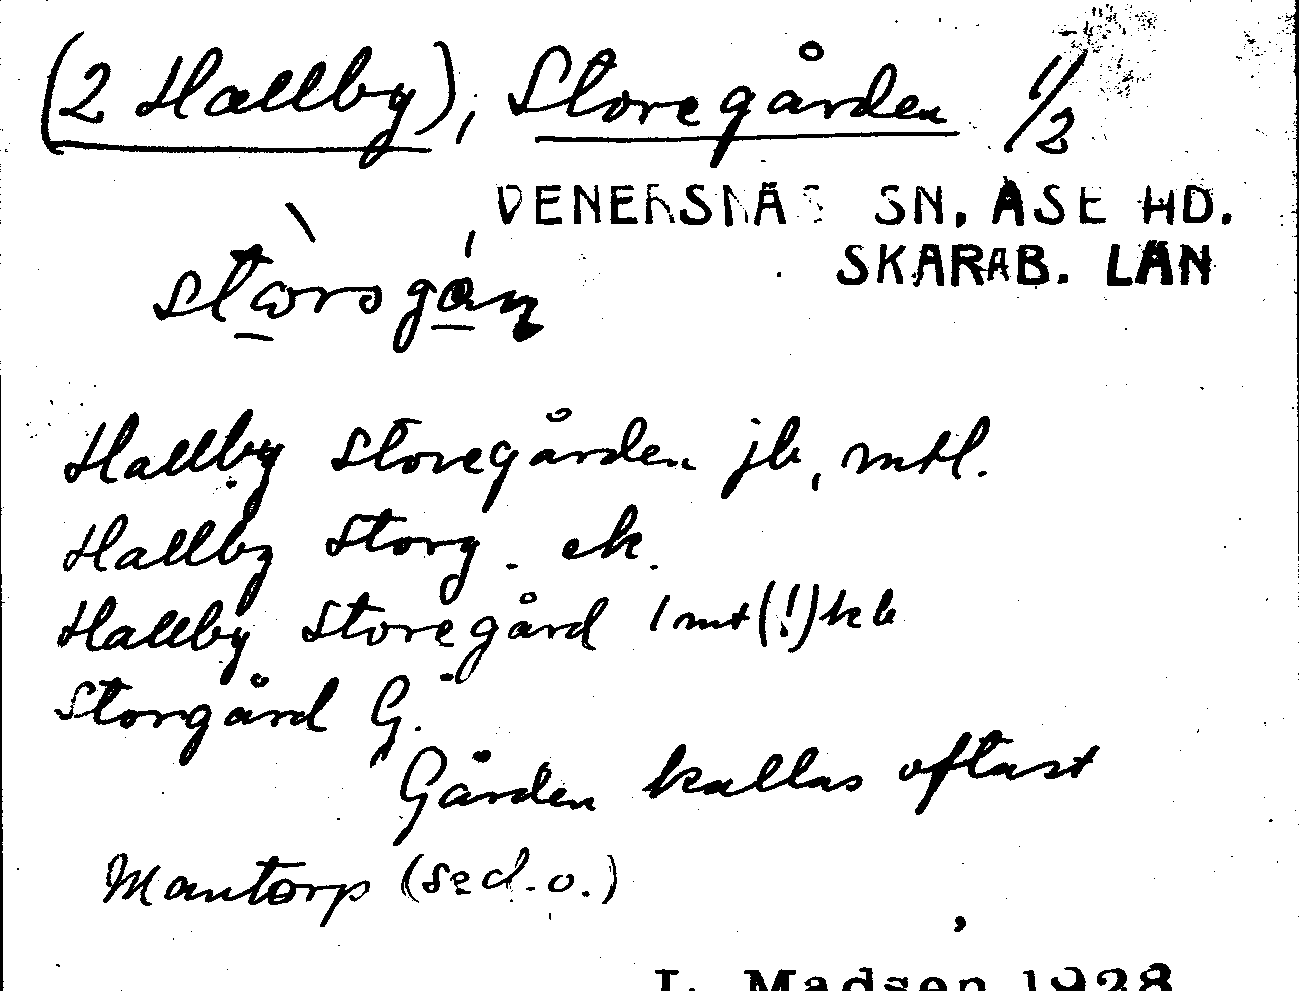 (2 Hallby), Storegården 1/2
VENERSNÄS SN. ÅSE HD.
SKARAB. LÄN
Hallby Storegården jb, mtl.
Hallby Storg. ek.
Hallby Storegård 1 mt(!) kb
Storgård G.
Gården kallas oftast
Mantorp (se d. o.)
L. Madsen 1928